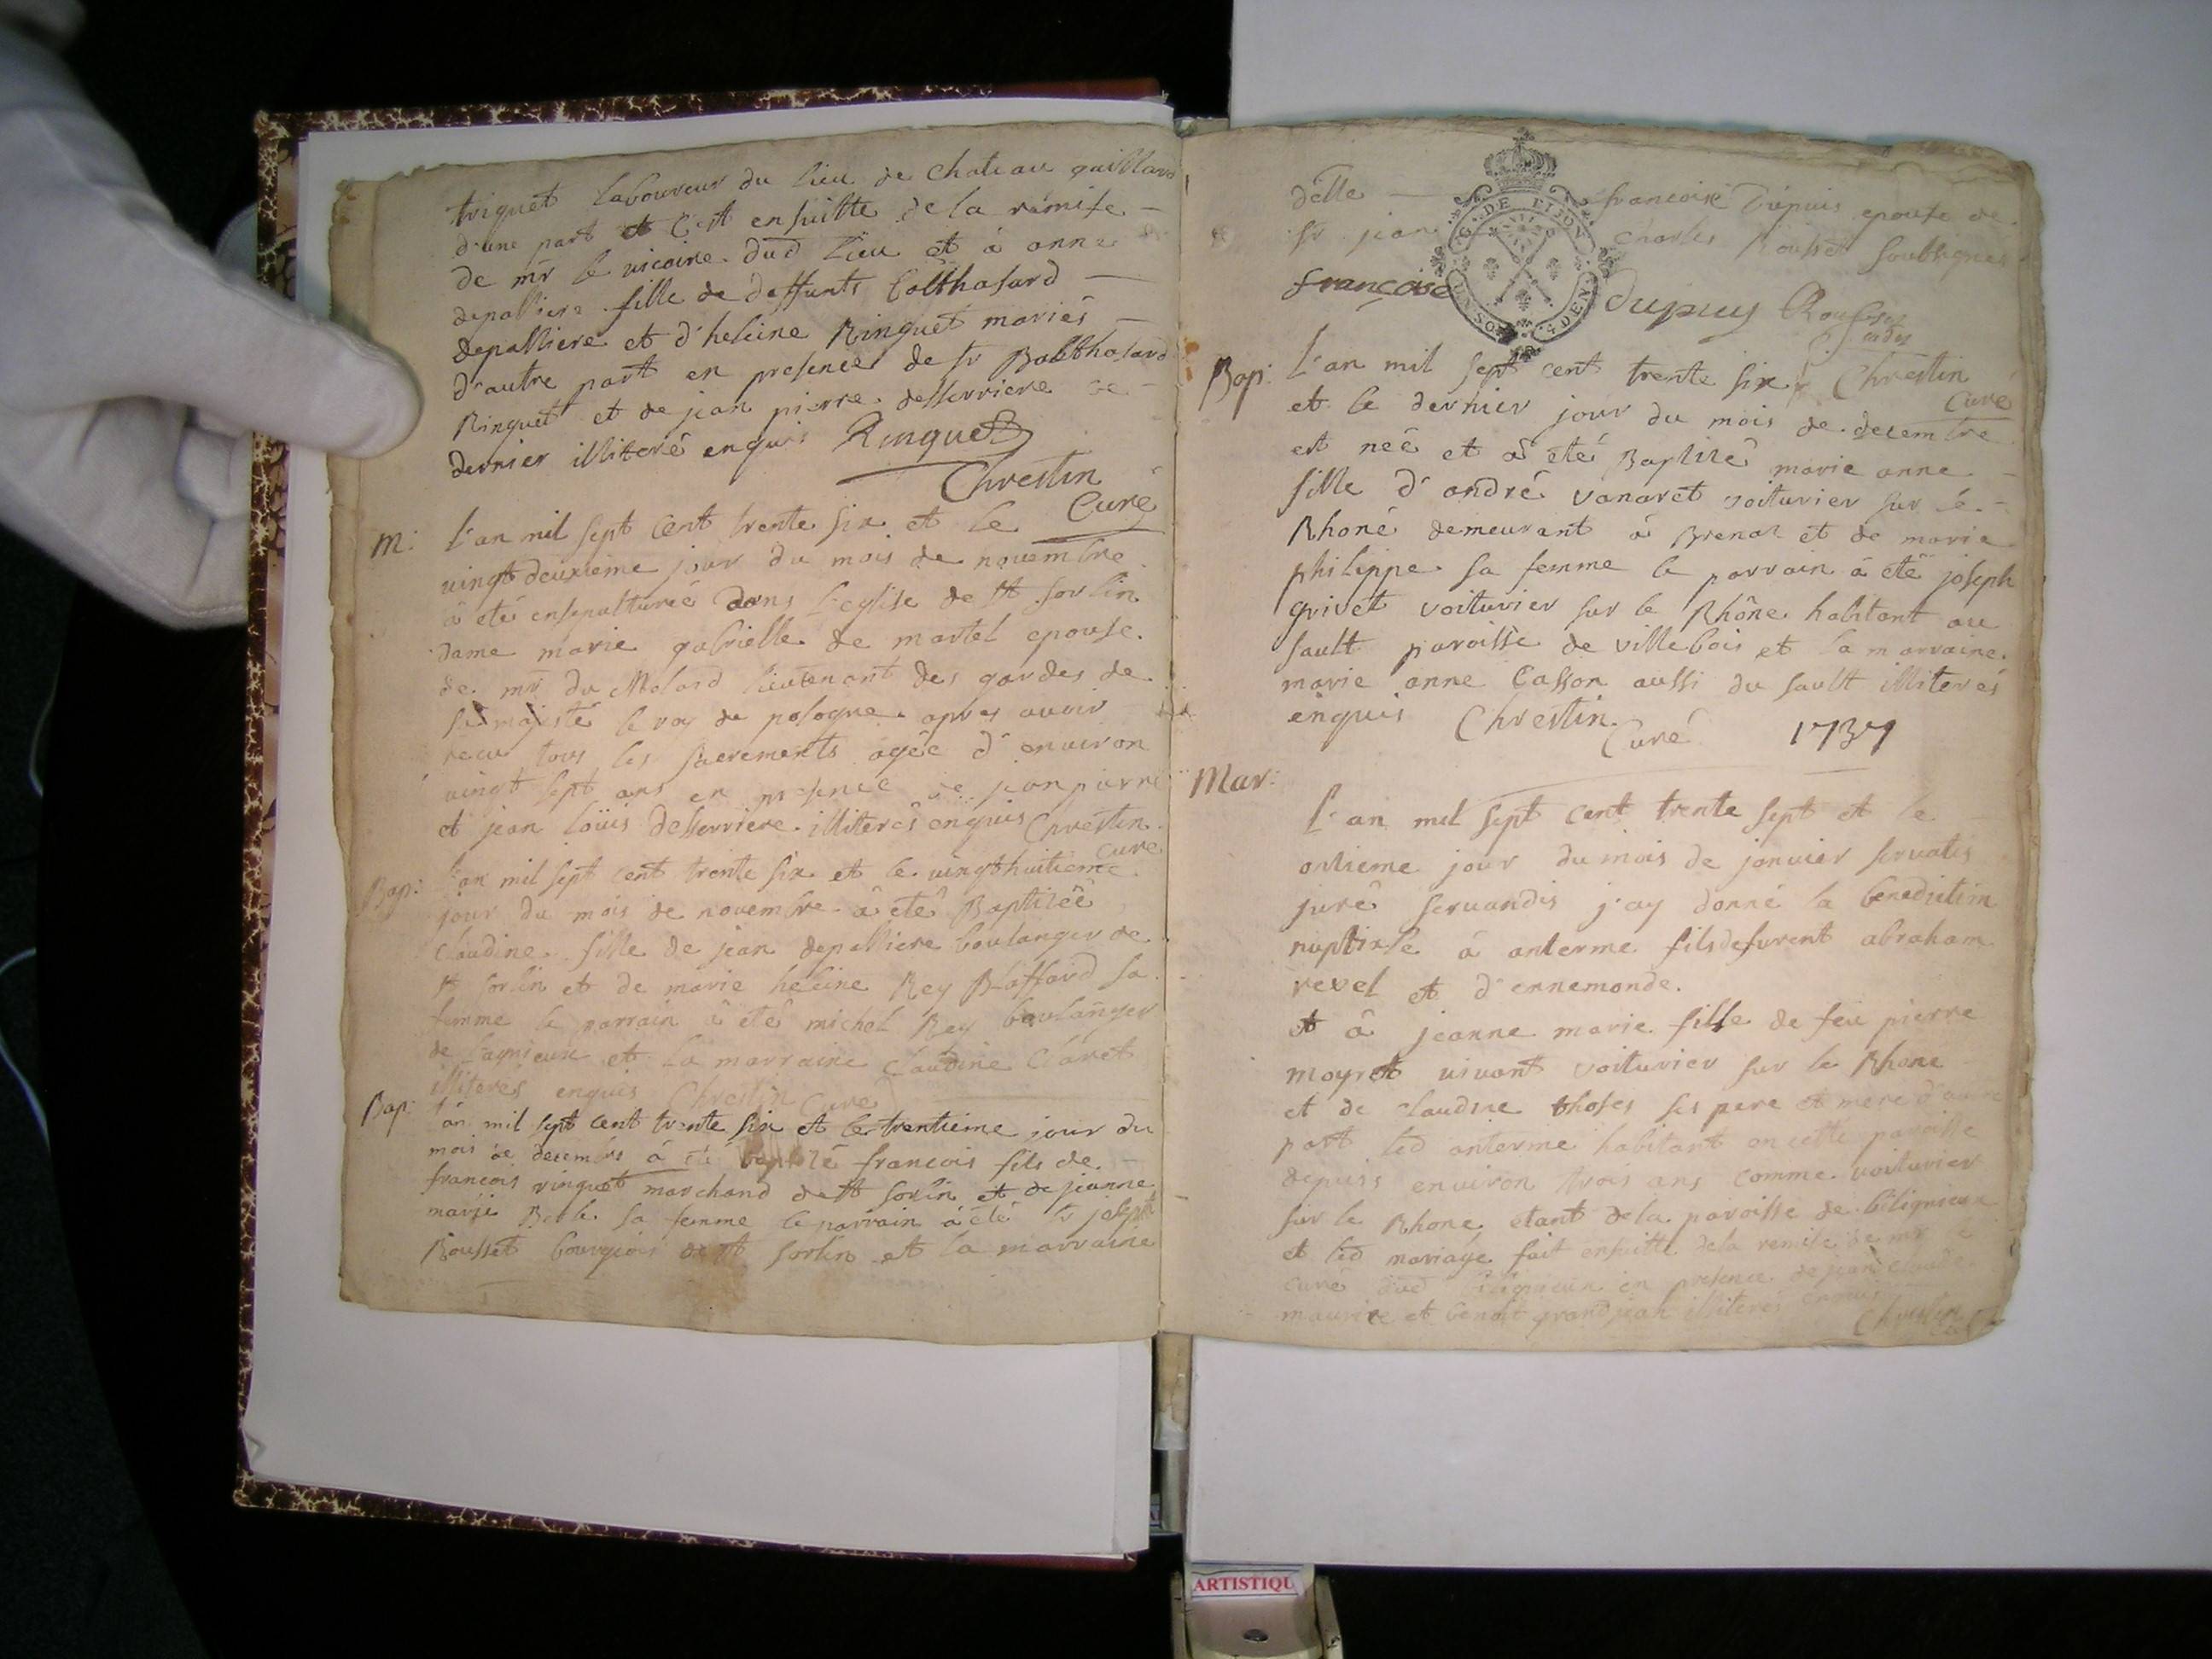 triquet laboureur du lieu de chateau gaillard
d'une part et c'est ensuitte de la remise
de mr le vicaire dud lieu et à anne
depalliere fille de deffunts balthasard
depalliere et d'heleine Ringuet mariés
d'autre part en presence de sr Balthasard
Ringuet et de jean pierre desserriere ce
dernier illiteré enquis Ringuet
Chrestin
Curé
M: l'an mil sept cent trente six et le
vingt deuxieme jour du mois de novembre
à eté ensepulturée dans l'eglise de st sorlin
dame marie gabrielle de martel epouse
de mr du Molard lieutenant des gardes de
sa majesté le roy de pologne apres avoir
recu tous les sacrements agée d'environ
vingt sept ans en presence de jean pierre
et jean loüis desserriere illiterés enquis Chrestin
Curé
Bap: l'an mil sept cent trente six et le vingthuitieme
jour du mois de novembre à eté Baptizéé
claudine fille de jean depalliere boulanger de
st sorlin et de marie heleine Rey Blaffard sa
femme le parrain à eté michel Rey boulanger
de lagnieux et la marraine claudine Claret
illiterés enquis Chrestin Curé
Bap: l'an mil sept cent trente six et le trentieme jour du
mois de decembre à eté baptizé francois fils de
francois ringuet marchand de st sorlin et de jeanne
marie sa femme le parrain à eté sr joseph
Rousset bourgeois de st sorlin et la marraine
delle francoise Dupuis epouse de
sr jean charles Rousset soubsignés
G. DE DIJON
françoise dupuy Rousset
Chrestin
Curé
Bap: l'an mil sept cent trente six
et le dernier jour du mois de decembre
est neé et à eté Baptizé marie anne
fille d'andré vanaret voiturier sur le
Rhone demeurant à Brenaz et de marie
philippe sa femme le parrain à eté joseph
grivet voiturier sur le Rhône habitant au
sault paroisse de villebois et la marraine
marie anne Casson aussi du sault illiterés
enquis Chrestin
Curé 1737
Mar:
l'an mil sept cent trente sept et le
onzieme jour du mois de janvier servatis
jure servandis j'ay donné la benediction
nuptiale à anterme fils defurent abraham
revel et d'ennemonde
et à jeanne marie fille de feu pierre
moyret vivant voiturier sur le Rhone
et de claudine thoses ses pere et mere d'autre
part led anterme habitant en cette paroisse
depuis environ trois ans comme voiturier
sur le Rhone etant dela paroisse de bélignieux
et led mariage fait ensuitte dela remise de mr le
curé dud bélignieux en presence de jean claude
maurice et benoit grandjean illiterés enquis
Chrestin
ARTISTIQU